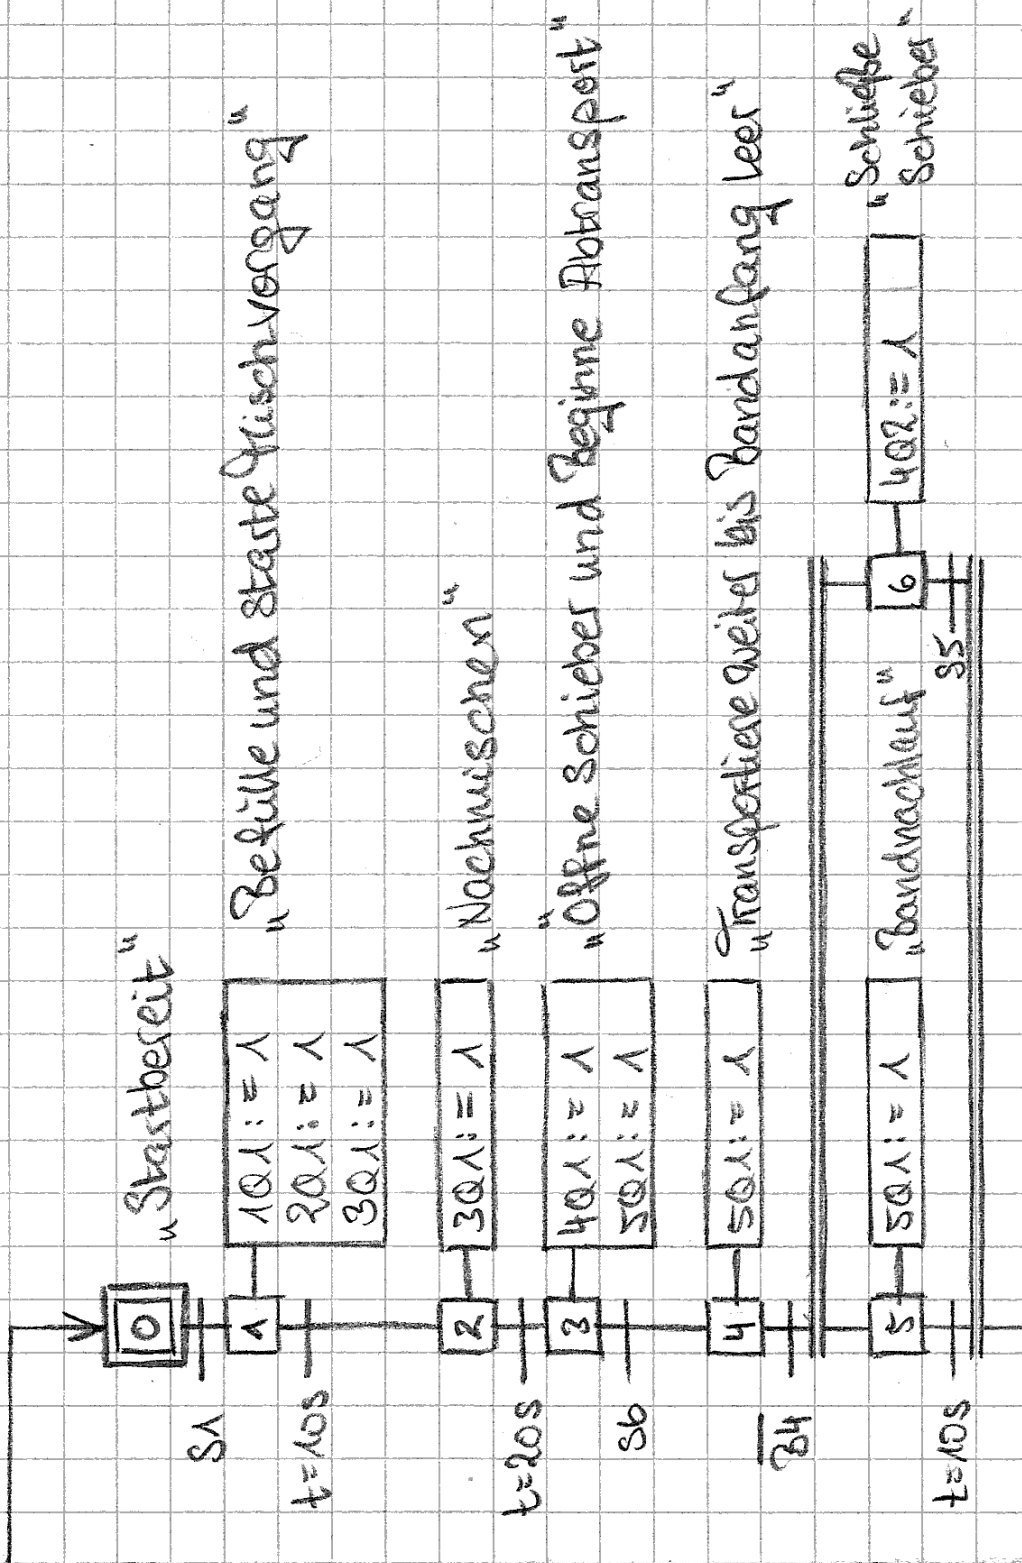 0 „Startbereit“
S1
1 1Q1:=1 „Befülle und starte Mischvorgang“
2Q1:=1
3Q1:=1
t=10s
2 3Q1:=1 „Nachmischen“
t=20s
3 4Q1:=1 „Öffne Schieber und Beginne Abtransport“
5Q1:=1
S6
4 5Q1:=1 „Transportiere weiter bis Bandanfang leer“
B̅4̅
5 5Q1:=1 „Bandnachlauf“
t=10s
6 4Q2:=1 „Schließe
Schieber“
S5